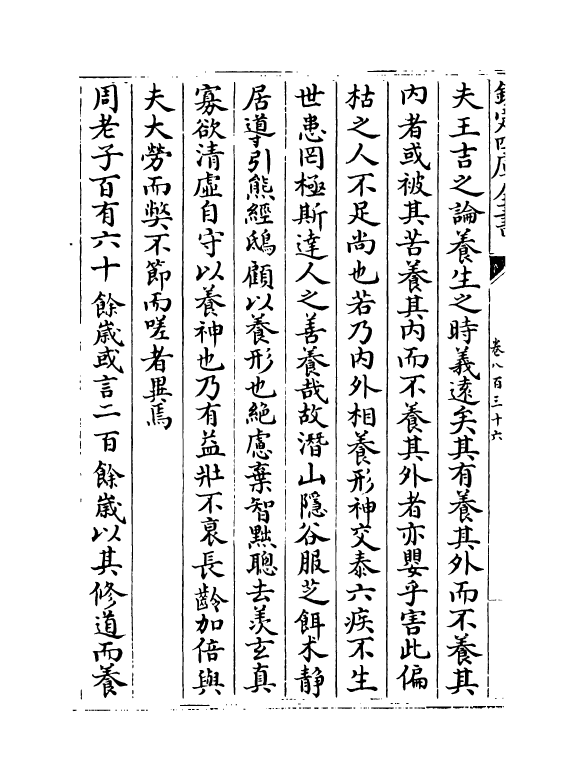 欽定四庫全書
卷八百三十六
夫王吉之論養生之時義遠矣其有養其外而不養其
內者或被其苦養其內而不養其外者亦嬰乎害此偏
枯之人不足尚也若乃內外相養形神交泰六疾不生
世患罔極斯達人之善養哉故潛山隱谷服芝餌术靜
居導引熊經鴟顧以養形也絕慮棄智黜聰去羨玄真
寡欲清虛自守以養神也乃有益壯不衰長齡加倍與
夫大勞而獘不節而嗟者異焉
周老子百有六十餘歲或言二百餘歲以其修道而養